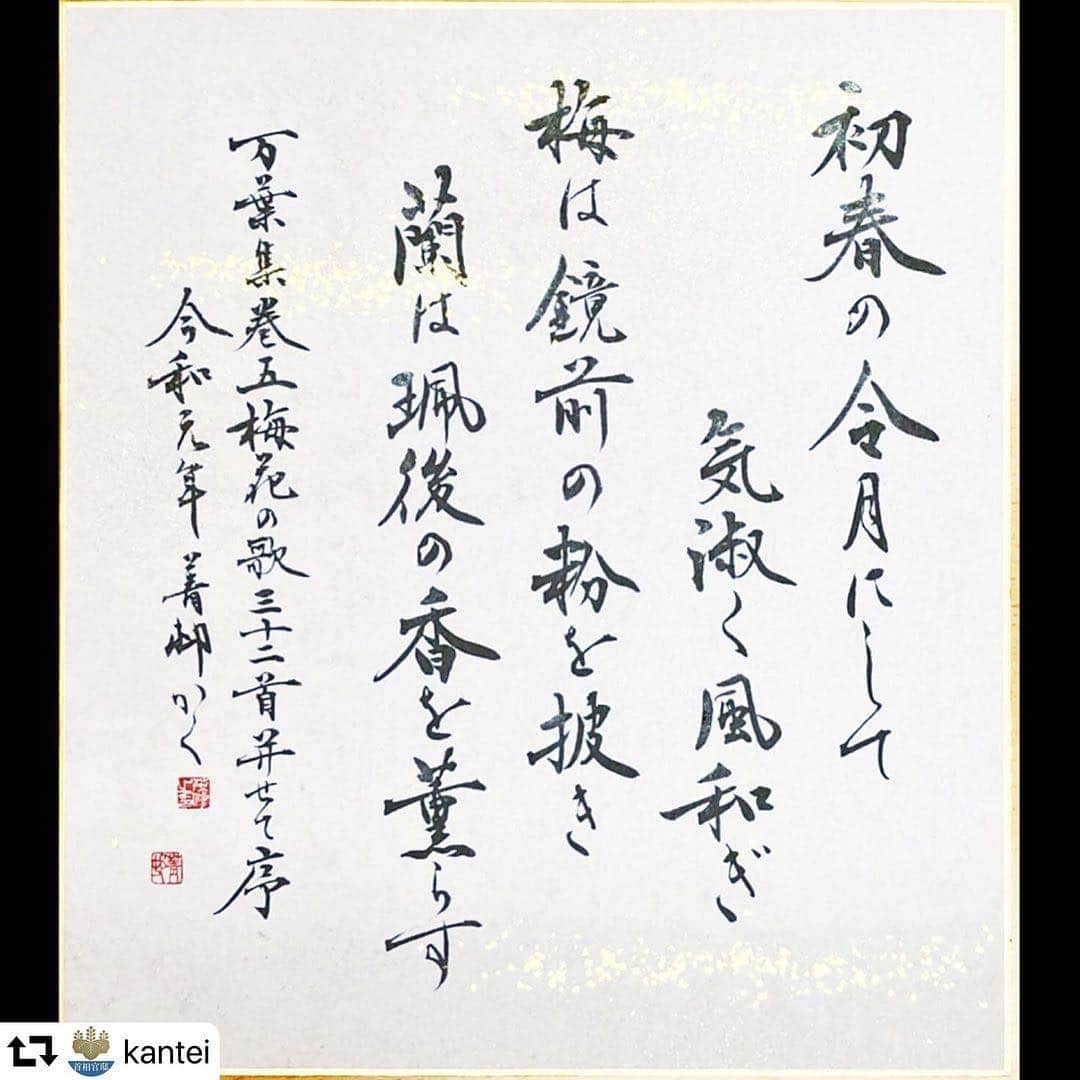 初春の令月にして
気淑く風和ぎ
梅は鏡前の粉を披き
蘭は珮後の香を薫らす
万葉集巻五梅花の歌三十二首并せて序
令和元年 菁邨かく
首相官邸
kantei